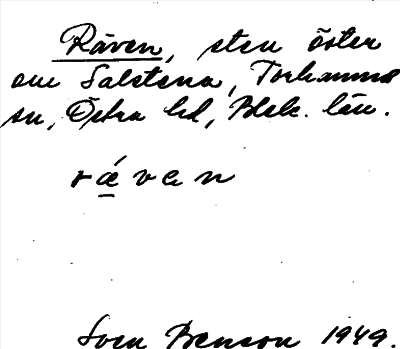 Räven, sten öster
om Saletena, Torhamns
sn, Östra hd, Blek. län.
rǽven
Sven Benson 1949.